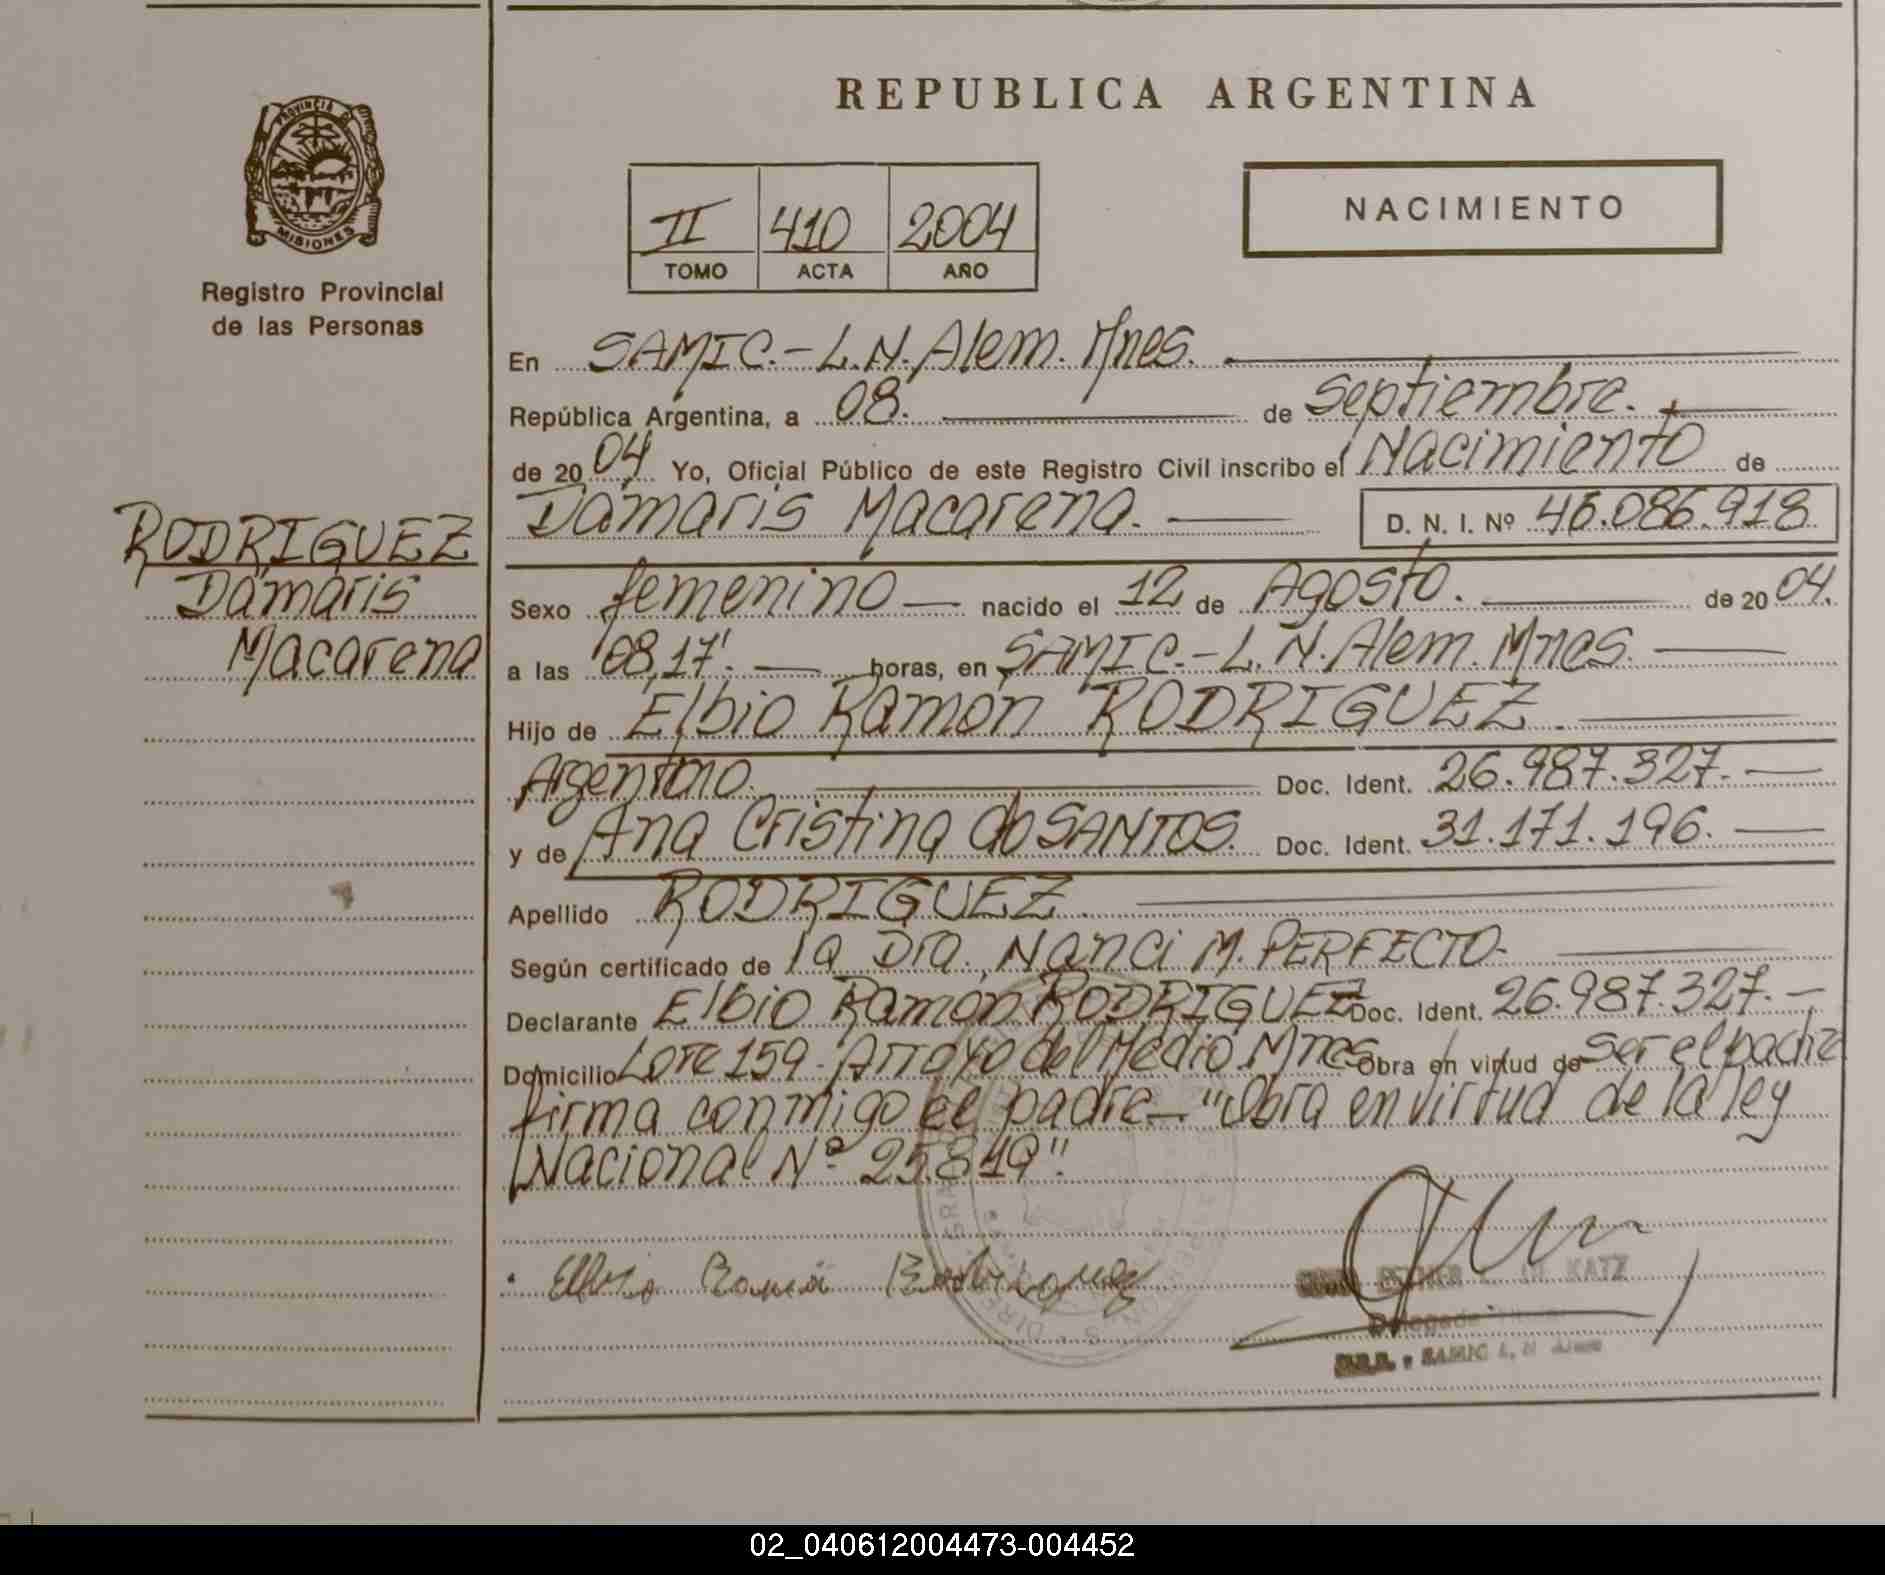 REPUBLICA ARGENTINA
PROVINCIA DE
MISIONES
Registro Provincial
de las Personas
II 410 2004
TOMO ACTA AÑO
NACIMIENTO
En SAMIC.- L.N. Alem. Mnes.
República Argentina, a 08. de septiembre.
de 2004 Yo, Oficial Público de este Registro Civil inscribo el Nacimiento de
Damaris Macarena. D. N. I. Nº 46.086.918
RODRIGUEZ
Damaris
Macarena
Sexo femenino nacido el 12 de Agosto. de 2004.
a las 08,17'. horas, en SAMIC.- L. N. Alem. Mnes.
Hijo de Elbio Ramón RODRIGUEZ.
Argentino. Doc. Ident. 26.987.327.
y de Ana Cristina do SANTOS. Doc. Ident. 31.171.196.
Apellido RODRIGUEZ.
Según certificado de la Dra. Nanci M. PERFECTO.
Declarante Elbio Ramón RODRIGUEZ Doc. Ident. 26.987.327.
Domicilio Lote 159 - Arroyo del Medio Mnes Obra en virtud de ser el padre
firma conmigo el padre.- "Obra en virtud de la ley
Nacional Nº 25.819".
Elbio Ramón Rodriguez
KATZ
Delegada
SAMIC L. N Alem
02_040612004473-004452